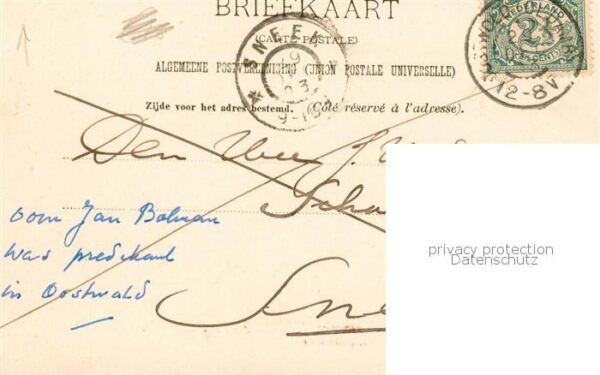 BRIEFKAART
(CARTE POSTALE)
ALGEMEENE POSTVEREENIGING (UNION POSTALE UNIVERSELLE)
Zijde voor het adres bestemd. (Côté réservé à l'adresse).
NEDERLAND
2½
CENT
12-8V
SNEEK
19
03
Den Heer
Scha
Sne
oom Jan Bolman
was predikant
in Oostwald
privacy protection
Datenschutz